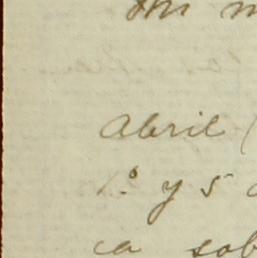 Abril (
1.º y 5
ca sob